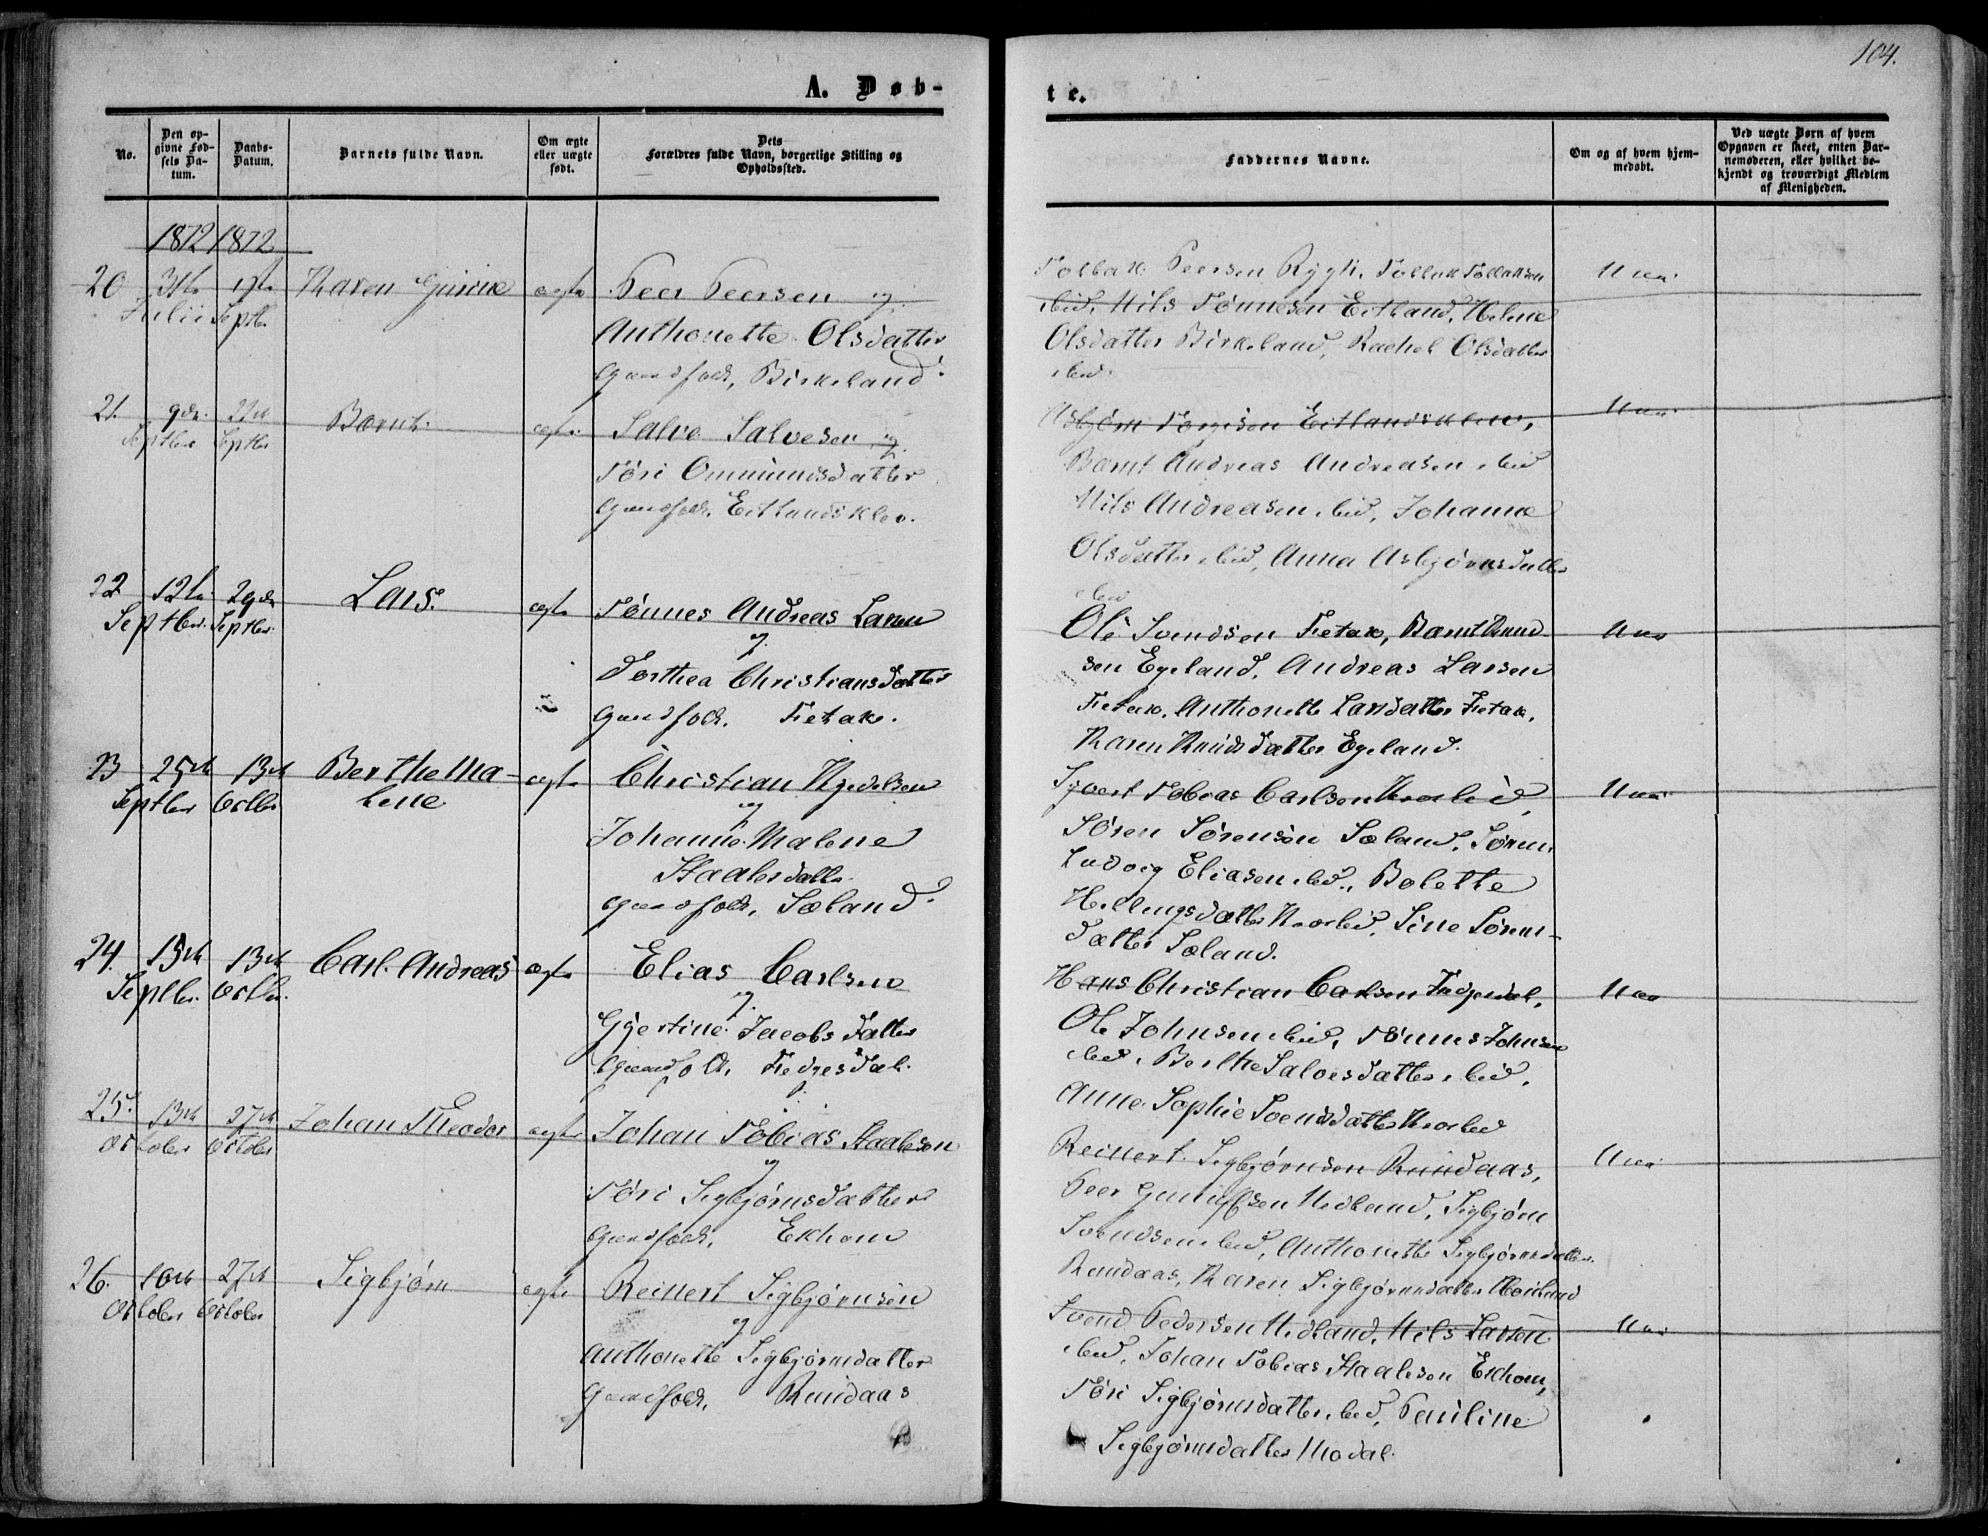 104.
A. Døb-
te.
No.
Den op-
givne Fød-
sels Da-
tum.
Daabs-
Datum.
Barnets fulde Navn.
Om ægte
eller uægte
født.
Dets
Forældres fulde Navn, borgerlige Stilling og
Opholdssted.
Faddernes Navne.
Om og af hvem hjem-
medøbt.
Ved uægte Børn af hvem
Opgaven er skeet, enten Bar-
nemoderen, eller hvilket be-
kjendt og troværdigt Medlem
af Menigheden.
1872 1872
20 31te 1ste Karen ægte Peer Peersen og
Julii Septbr
Anthonette Olsdatter
Gaardfolk, Birkeland.
Tollak Peersen Rygh, Tollak Tollaksen
ibid, Nils Tønnesen Eitland, Helene
Olsdatter Birkeland, Rachel Olsdatter
ibid.
21. 9de 22de Bernt. ægte Salve Salvesen og
Septbr Septbr
Tøri Ommundsdatter
Gaardfolk, Eitlandsklev.
Asbjørn Torgisen Eitlandsklev,
Bernt Andreas Andreasen ibid
Nils Andreasen ibid, Johanne
Olsdatter ibid, Anna Asbjørnsdatter
ibid
22 12te 29de Lars. ægte Tønnes Andreas Larsen
Septbr. Septbr.
og
Dorthea Christiansdatter
Gaardfolk. Fretak.
Ole Svendsen Fretak, Bernt Knud-
sen Egeland, Andreas Larsen
Fretak, Anthonette Larsdatter Fretak,
Karen Knudsdatter Egeland.
23 25de 13de Berthe Ma- ægte Christian Kjedelsen
Septbr Octbr lene
og
Johanne Malene
Staalesdatter
Gaardfolk, Sæland.
Sjvert Tobias Carlsen
Søren Sørensen Sæland, Søren
Ludvig Eliasen ibid., Bolette
Hellingsdatter Sine Sørens-
datter Sæland.
24. 15de 13de Carl Andreas ægte Elias Carlsen
Septbr. Octbr.
og
Gjertine Jacobsdatter
Gaardfolk, Fedjesdal.
Hans Christian Carlsen Fedjesdal,
Ole Johnsen ibid, Tønnes Johnsen
ibid, Berthe Salvesdatter ibid,
Anne Sophie Svendsdatter
25. 13de 27de Johan Theodor ægte Johan Tobias Staalesen
October October
og
Tøri Sigbjørnsdatter
Gaardfolk, Ekhom
Reinert Sigbjørnsen Rundaas,
Peer Gundersen Nedland, Sigbjørn
Svendsen ibid, Anthonette Sigbjørnsdatter
Rundaas, Karen Sigbjørnsdatter
26. 10de 27de Sigbjørn ægte Reinert Sigbjørnsen
October October
og
Anthonette Sigbjørnsdatter
Gaardfolk, Rundaas
Svend Pedersen Nedland, Nils Larsen
ibid, Johan Tobias Staalesen Ekhom,
Tøri Sigbjørnsdatter ibid, Pauline
Sigbjørnsdatter Modal.